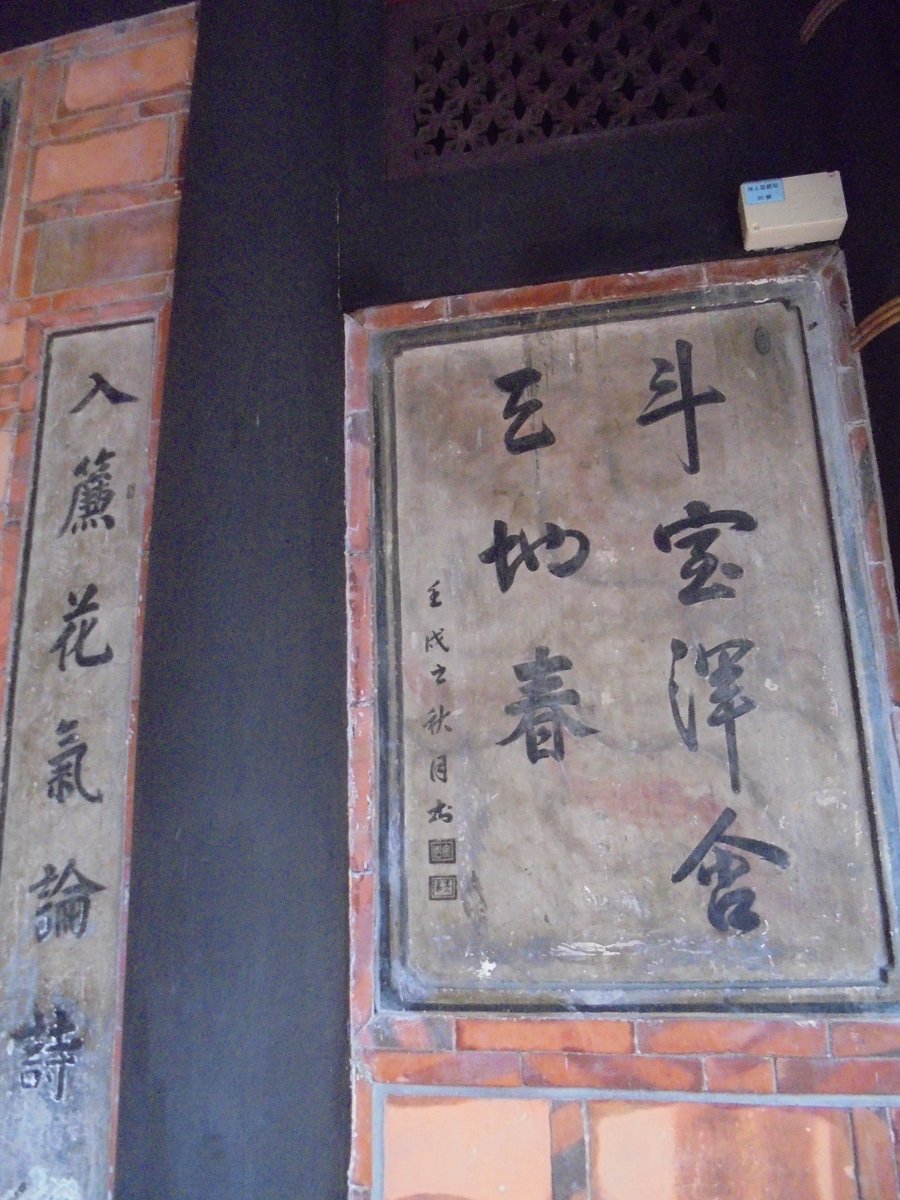 斗室澤含
天地春
壬戌之秋月
入簾花氣論詩